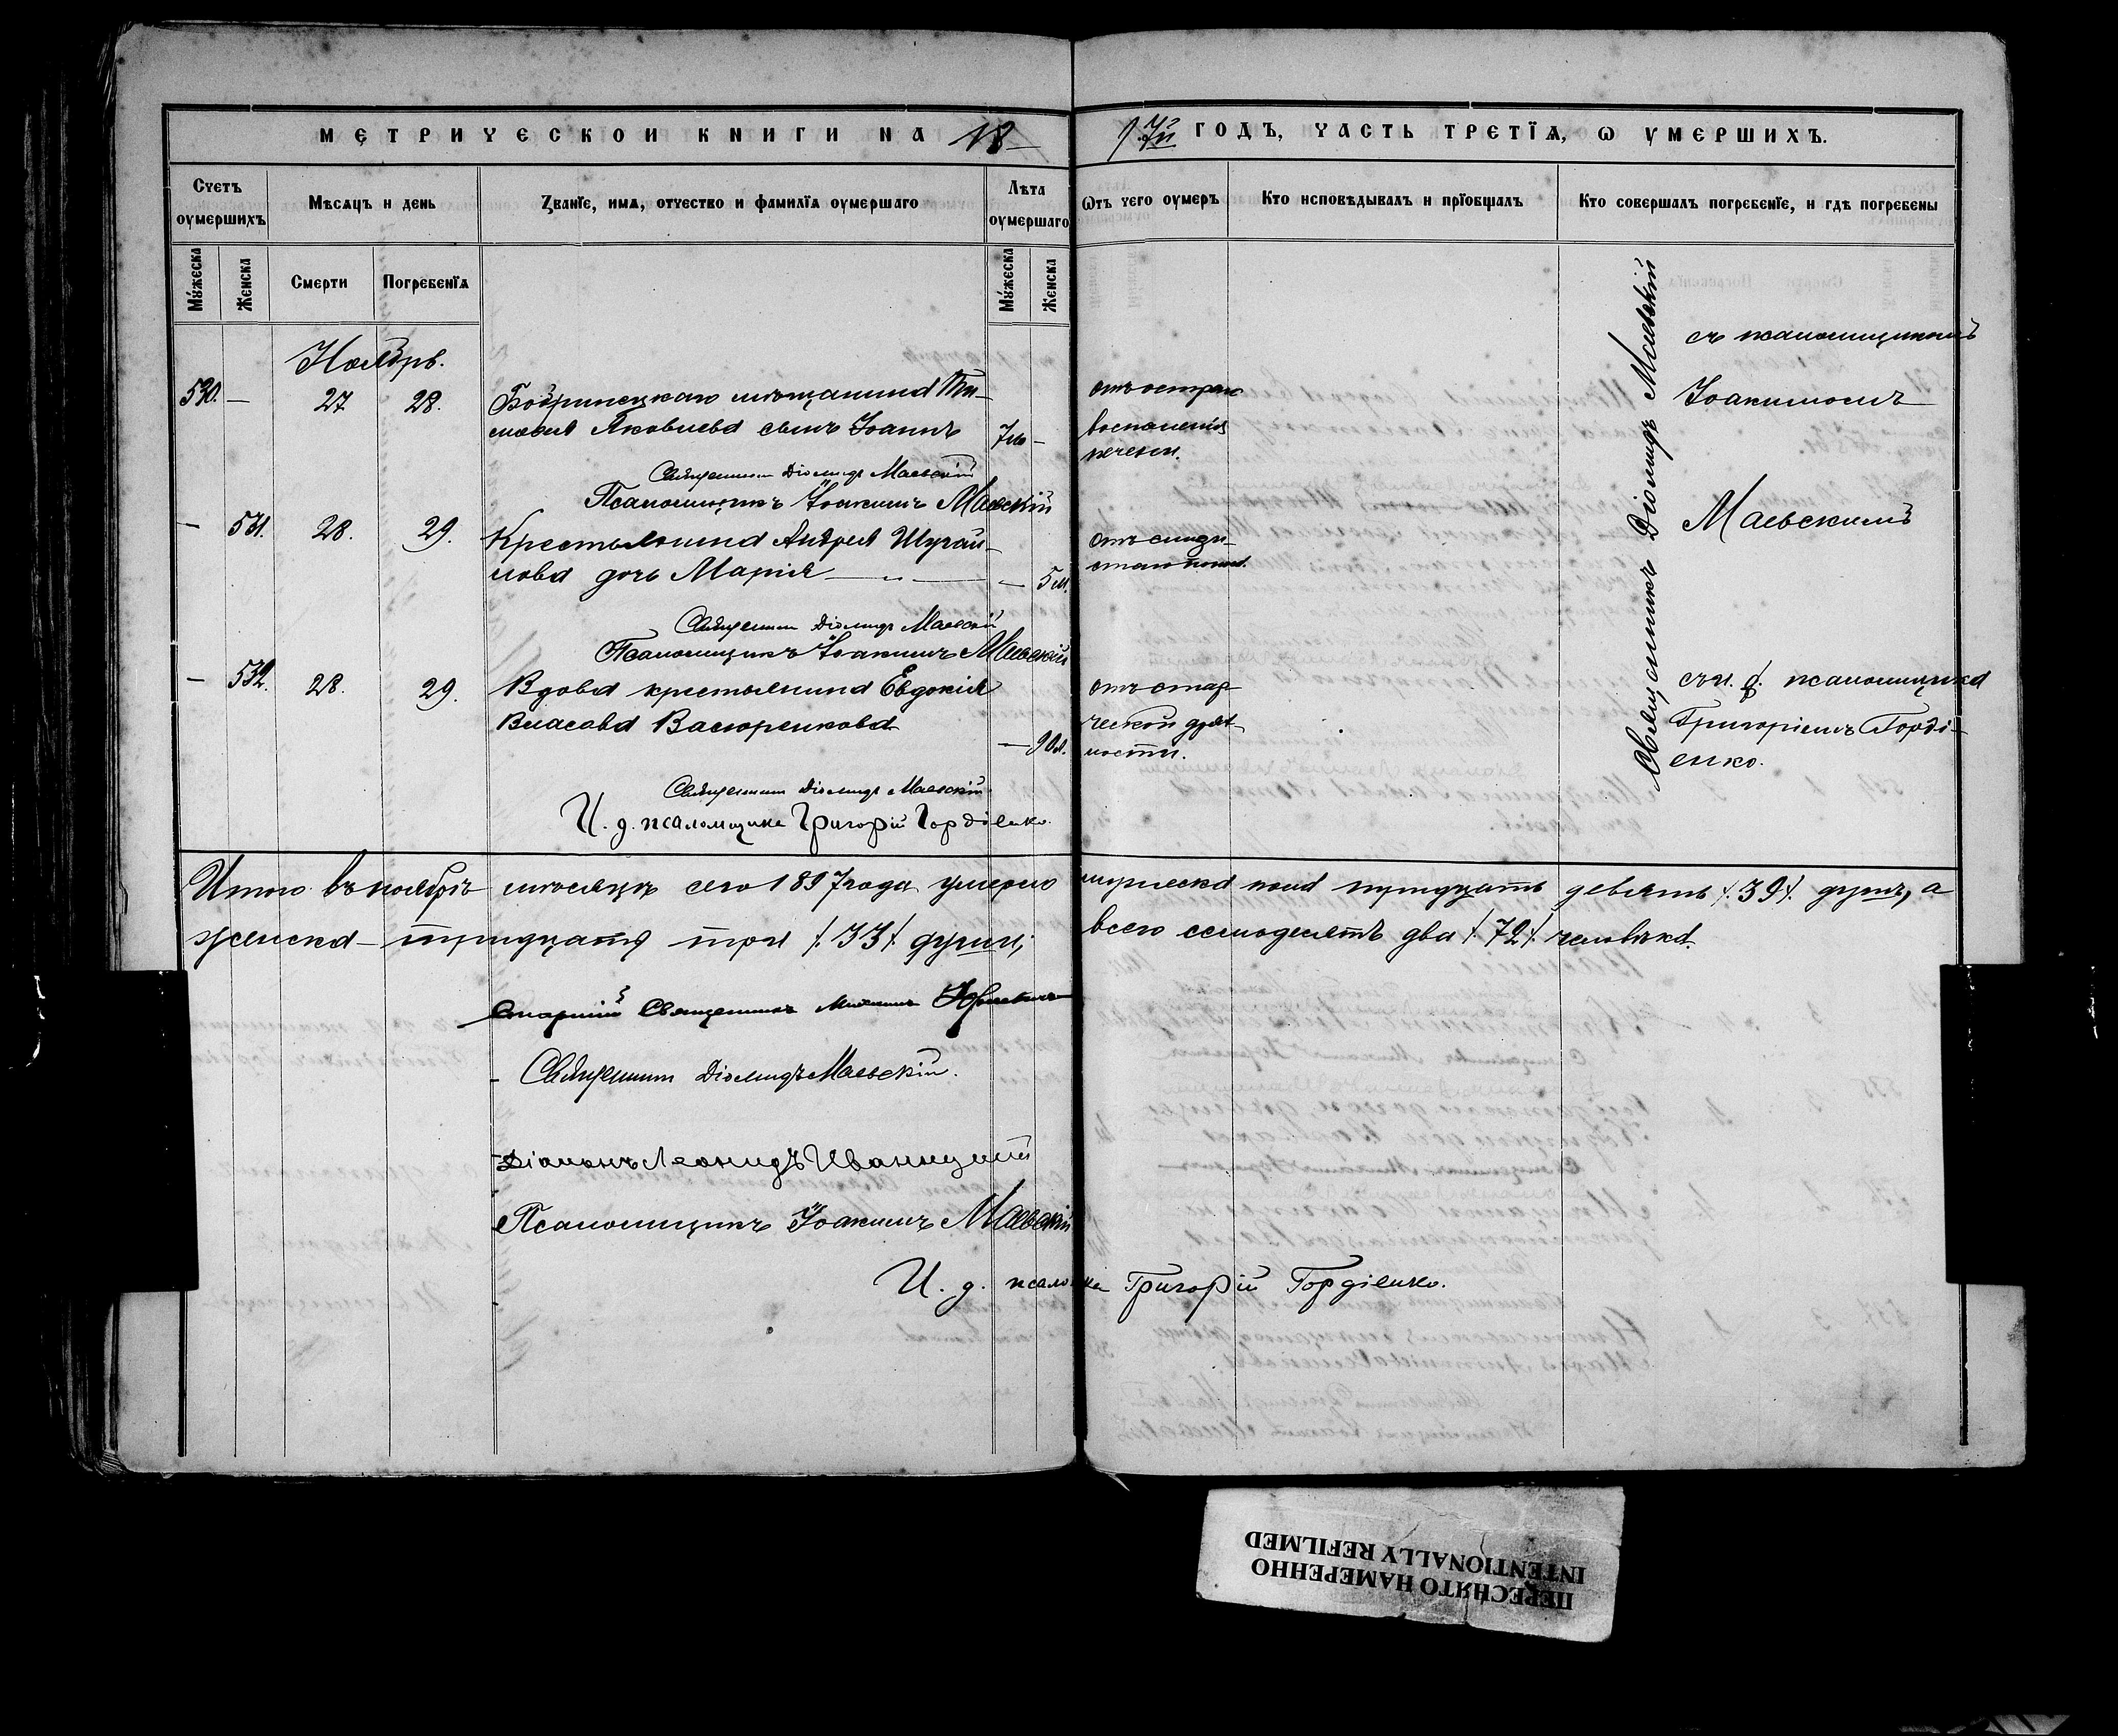 МЕТРИЧЕСКОЙ КНИГИ НА 18
97й ГОДЪ, ЧАСТЬ ТРЕТІѦ, Ѡ УМЕРШИХЪ.
Счетъ оумершихъ
Мѣсѧцъ и день
Званїе, имѧ, отчество и фамилїѧ оумершаго
Лѣта оумершаго
Ѿтъ чего оумеръ
Кто исповѣдывалъ и прїобщалъ
Кто совершалъ погребенїе, и гдѣ погребены
Мужеска
Женска
Смерти
Погребенїѧ
Мужеска
Женска
Ноябрь.
530. — 27 28. Бобринецкаго мѣщанина Ти-
моѳея Яковлева сынъ Іоаннъ 7м —
отъ остраго
воспаленія
печени.
Священникъ Діомидъ Маевскій
съ псаломщикомъ
Іоакимомъ
Маевскимъ
Священникъ Діомидъ Маевскій
Псаломщикъ Іоакимъ Маевскій
— 531. 28. 29. Крестьянина Андрея
дочь Марія — „ — — 5м.
отъ
Священникъ Діомидъ Маевскій
Псаломщикъ Іоакимъ Маевскій
— 532. 28. 29. Вдова крестьянина Евдокія
Власова Васюренкова — 90л.
отъ стар-
ческой дрях-
лости.
съ и. д. псаломщика
Григоріемъ Горді-
енко.
Священникъ Діомидъ Маевскій
И. д. псаломщика Григорій Гордіенко.
Итого въ ноябрѣ мѣсяцѣ сего 1897 года умерло мужеска пола тридцать девять /.39/. душъ, а
женска — тридцать три /.33/. души, всего семьдесятъ два /.72/. человѣка.
Старшій Священникъ Михаилъ
Священникъ Діомидъ Маевскій.
Діаконъ Леонидъ Иваницкій
Псаломщикъ Іоакимъ Маевскій
И. д. псалом-ка Григорій Гордіенко.
ПЕРЕСНЯТО НАМЕРЕННО
INTENTIONALLY REFILMED